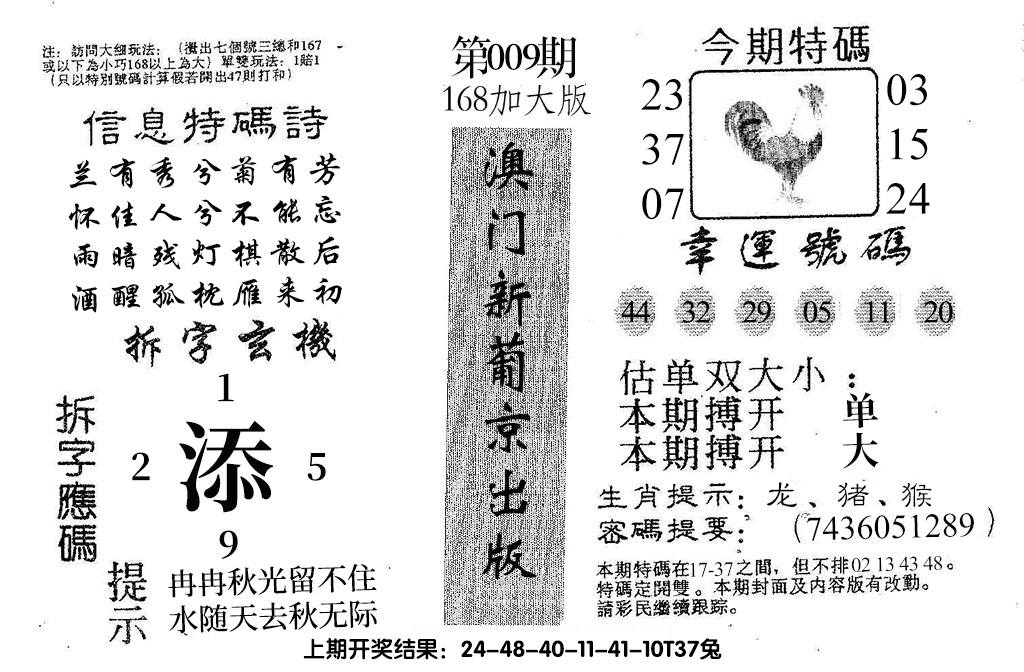 注：訪問大细玩法：（攪出七個號三總和167
或以下為小巧168以上為大）單雙玩法：1賠1
（只以特別號碼計算假若開出47則打和）
信息特碼詩
兰有秀兮菊有芳
怀佳人兮不能忘
雨暗残灯棋散后
酒醒孤枕雁来初
拆字玄機
拆字應碼
1
2 添 5
9
提示
冉冉秋光留不住
水随天去秋无际
第009期
168加大版
澳门新葡京出版
今期特碼
23 03
37 15
07 24
幸運號碼
44 32 29 05 11 20
估单双大小：
本期搏开 单
本期搏开 大
生肖提示：龙、猪、猴
密碼提要：（7436051289）
本期特碼在17-37之間，但不排02 13 43 48。
特碼定開雙。本期封面及内容版有改動。
請彩民繼續跟踪。
上期开奖结果：24-48-40-11-41-10T37兔